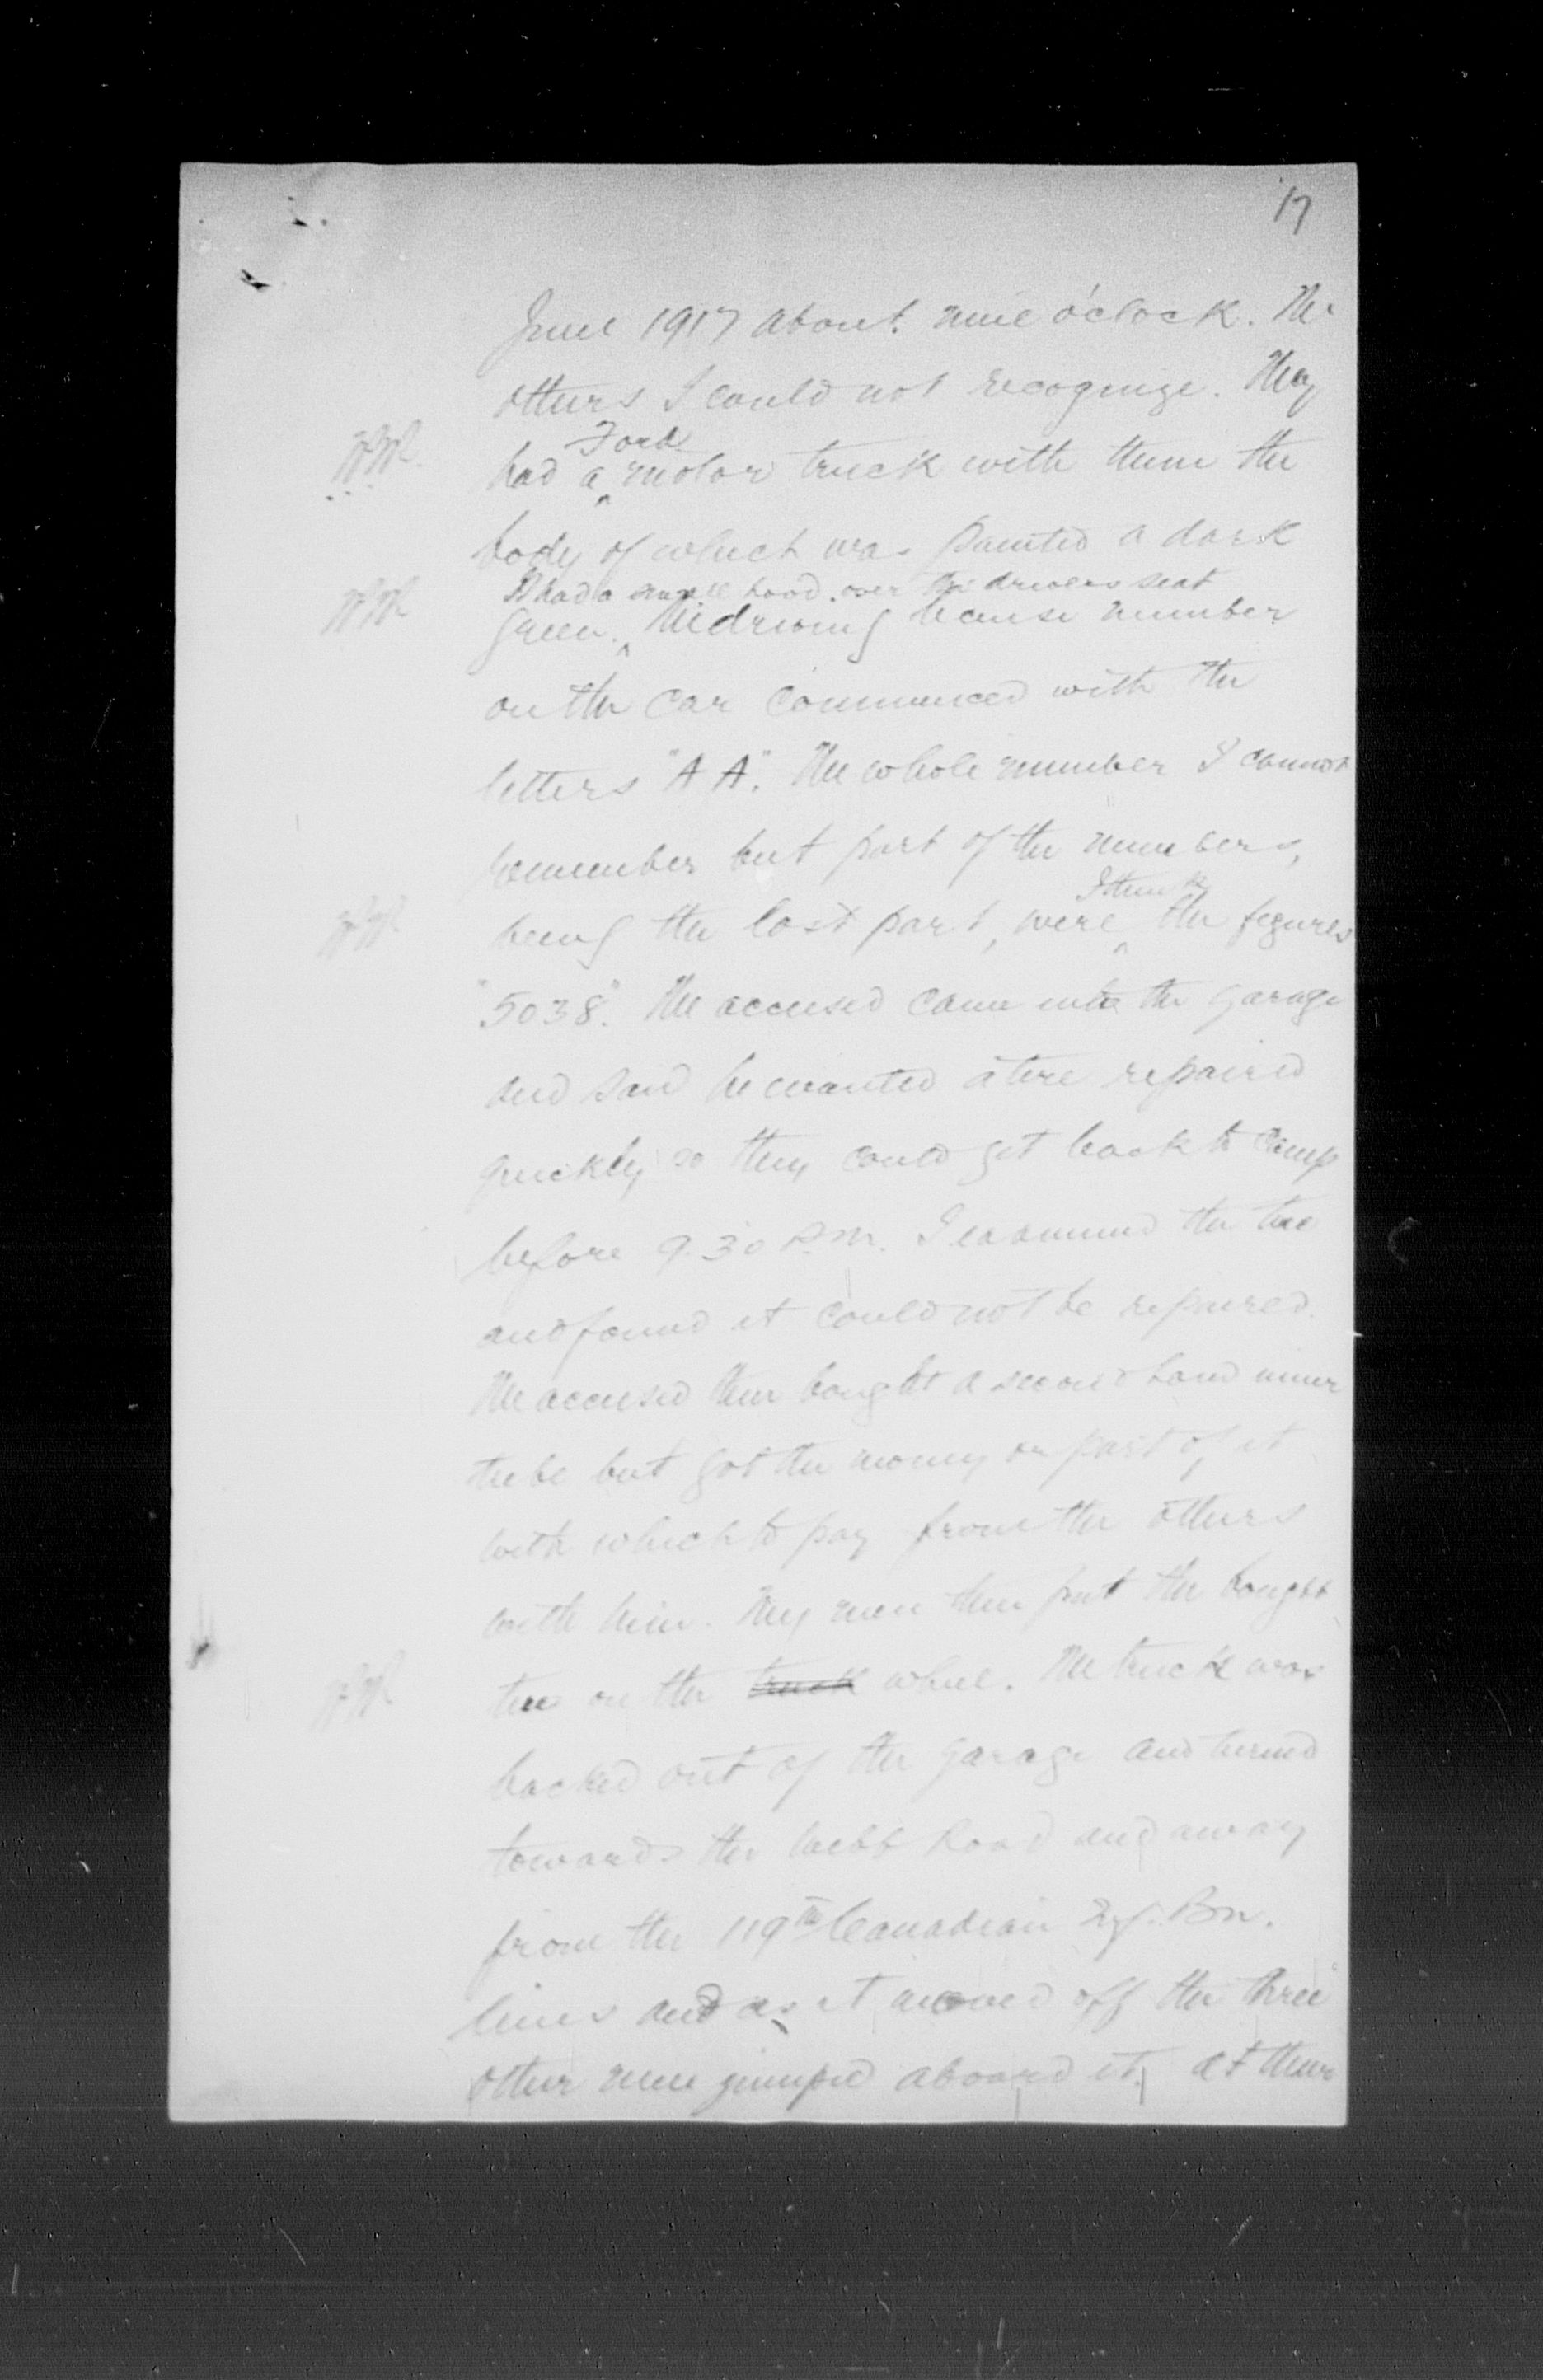 17
June 1917 about nine o'clock. The
others I could not recognize. They
Ford
had a motor truck with them the
body of which was painted a dark
It had a small hood over the drivers seat
green. The driving license number
on the car commenced with the
letters "AA". The whole number I cannot
remember but part of the numbers,
I think
being the last part, were the figures
"5038". The accused came into the garage
and said he wanted a tire repaired
quickly so they could get back to camp
before 9.30 P.M. I examined the tire
and found it could not be repaired.
The accused then bought a second hand inner
tube but got the money or part of it
with which to pay from the others
with him. My men then put the bought
tire on the truck wheel. The truck was
backed out of the garage and turned
towards the Road and away
from the 119th Canadian Inf. Bn.
lines and as it moved off the three
other men jumped aboard it. At